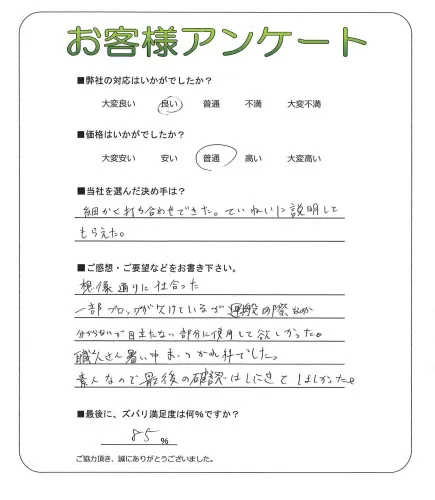 お客様アンケート
■弊社の対応はいかがでしたか?
大変良い 良い 普通 不満 大変不満
■価格はいかがでしたか?
大変安い 安い 普通 高い 大変高い
■当社を選んだ決め手は?
細かく打ち合わせできた。ていねいに説明して
もらえた。
■ご感想・ご要望などをお書き下さい。
想像通りに仕上った
一部ブロックが欠けているが運搬の際なのか
分からないが目立たない部分に使用して欲しかった。
職人さん暑い中おつかれ様でした。
素人なので最後の確認はしにきてほしかった。
■最後に、ズバリ満足度は何%ですか?
85%
ご協力頂き、誠にありがとうございました。